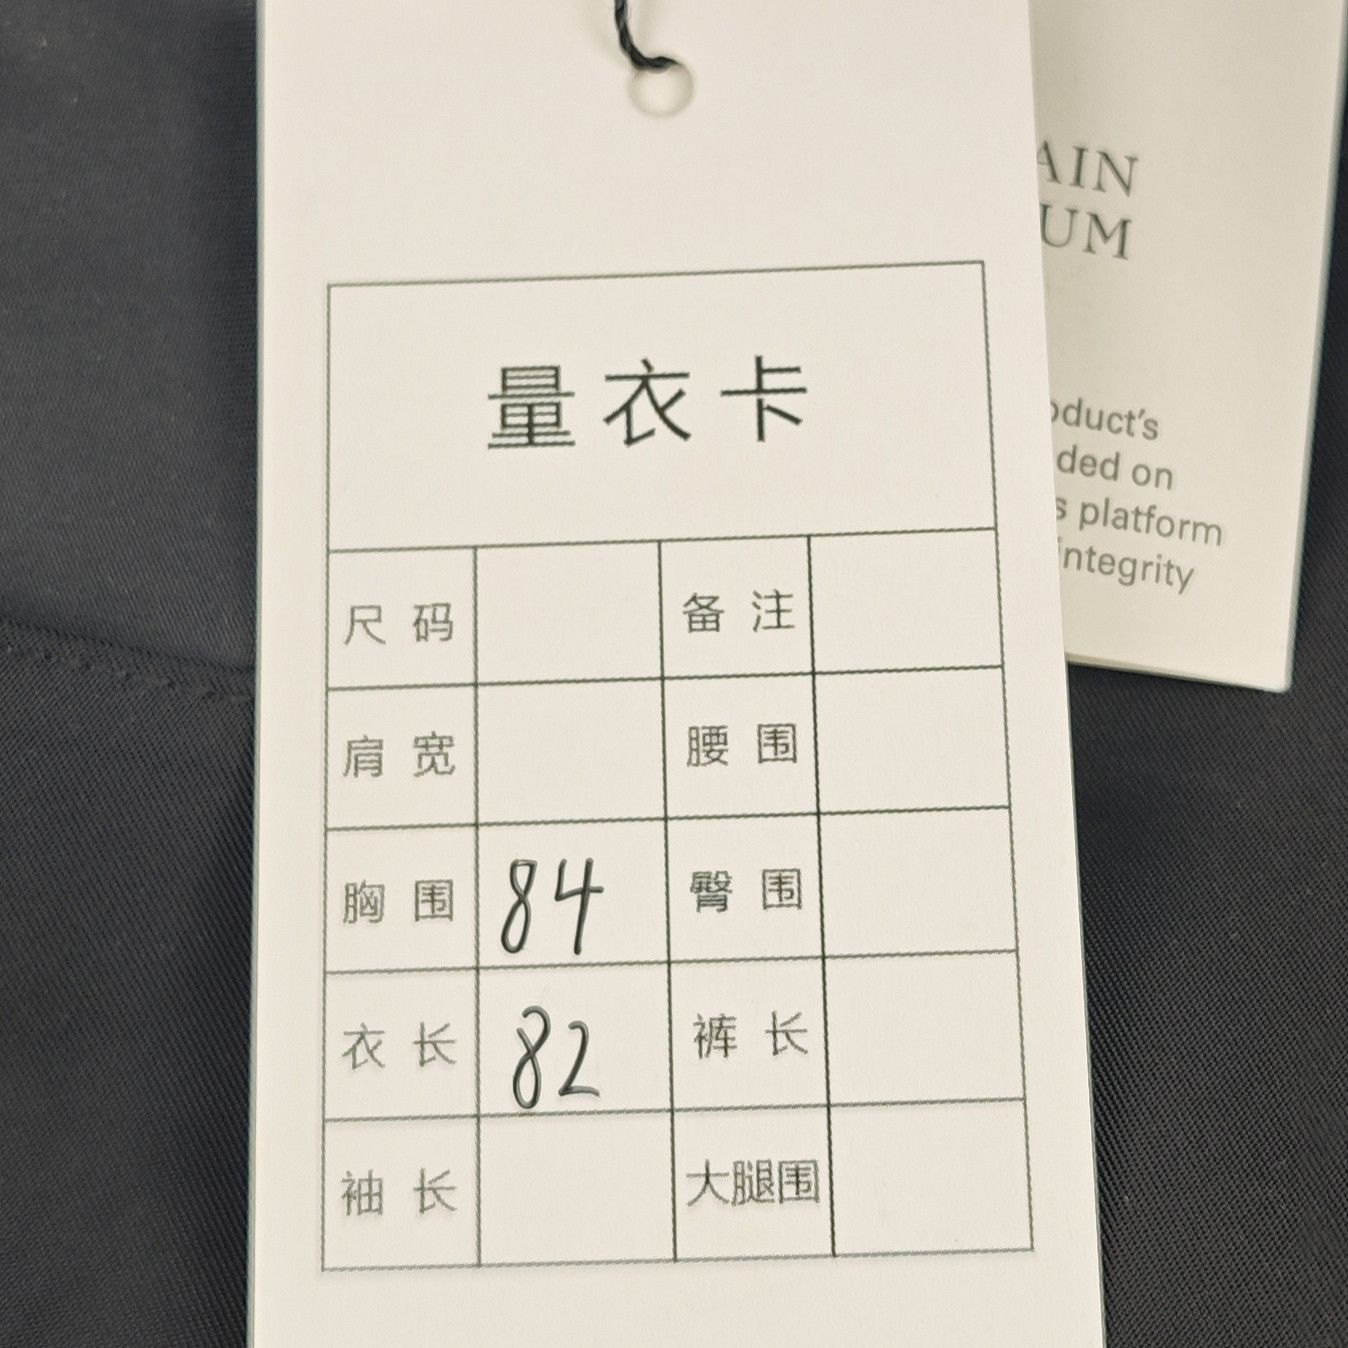 量衣卡
尺码 备注
肩宽 腰围
胸围 84 臀围
衣长 82 裤长
袖长 大腿围
AIN
UM
oduct's
ded on
s platform
integrity